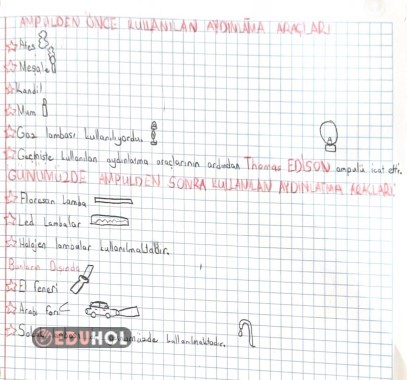 AMPULDEN ÖNCE KULLANILAN AYDINLATMA ARAÇLARI
Ateş
Meşale
Kandil
Mum
Gaz lambası kullanılıyordu.
Geçmişte kullanılan aydınlatma araçlarının ardından Thomas EDİSON ampulü icat etti.
GÜNÜMÜZDE AMPULDEN SONRA KULLANILAN AYDINLATMA ARAÇLARI
Floresan Lamba
Led Lambalar
Halojen lambalar kullanılmaktadır.
Bunların Dışında
El feneri
Araba farı
EDUHOL
kullanılmaktadır.